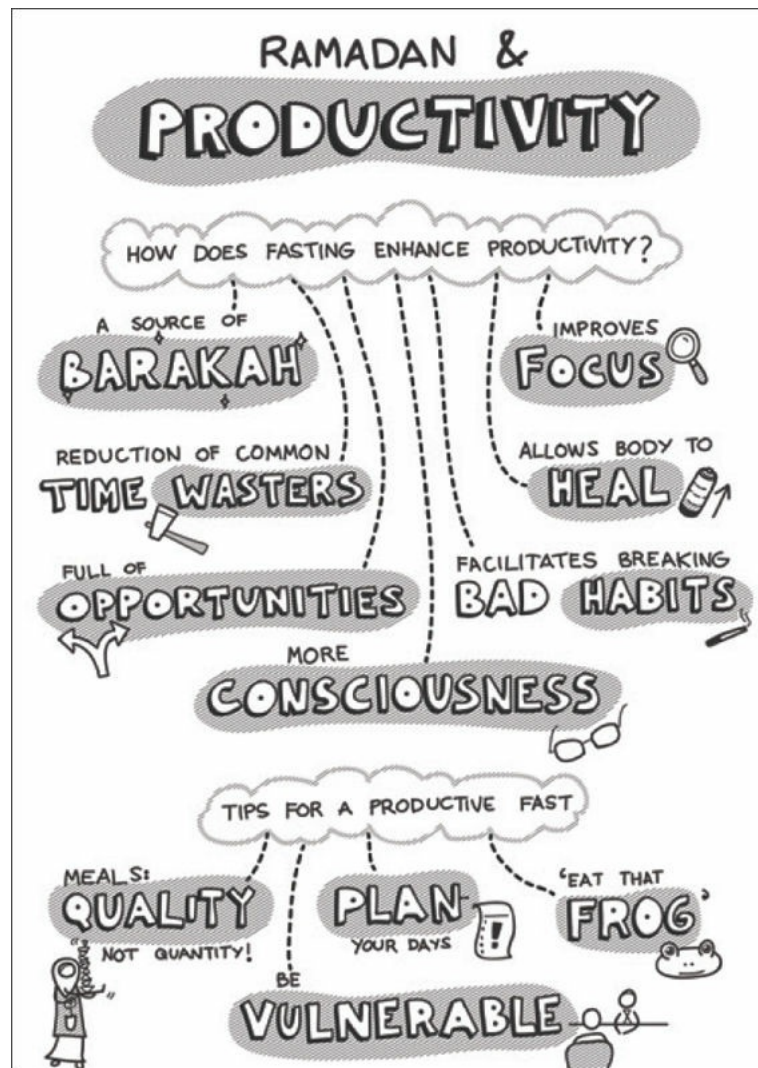 RAMADAN &
PRODUCTIVITY
HOW DOES FASTING ENHANCE PRODUCTIVITY?
A SOURCE OF
BARAKAH
IMPROVES
FOCUS
REDUCTION OF COMMON
TIME WASTERS
ALLOWS BODY TO
HEAL
FULL OF
OPPORTUNITIES
FACILITATES BREAKING
BAD HABITS
MORE
CONSCIOUSNESS
TIPS FOR A PRODUCTIVE FAST
MEALS:
QUALITY
NOT QUANTITY!
PLAN
YOUR DAYS
!
'EAT THAT
FROG'
BE
VULNERABLE